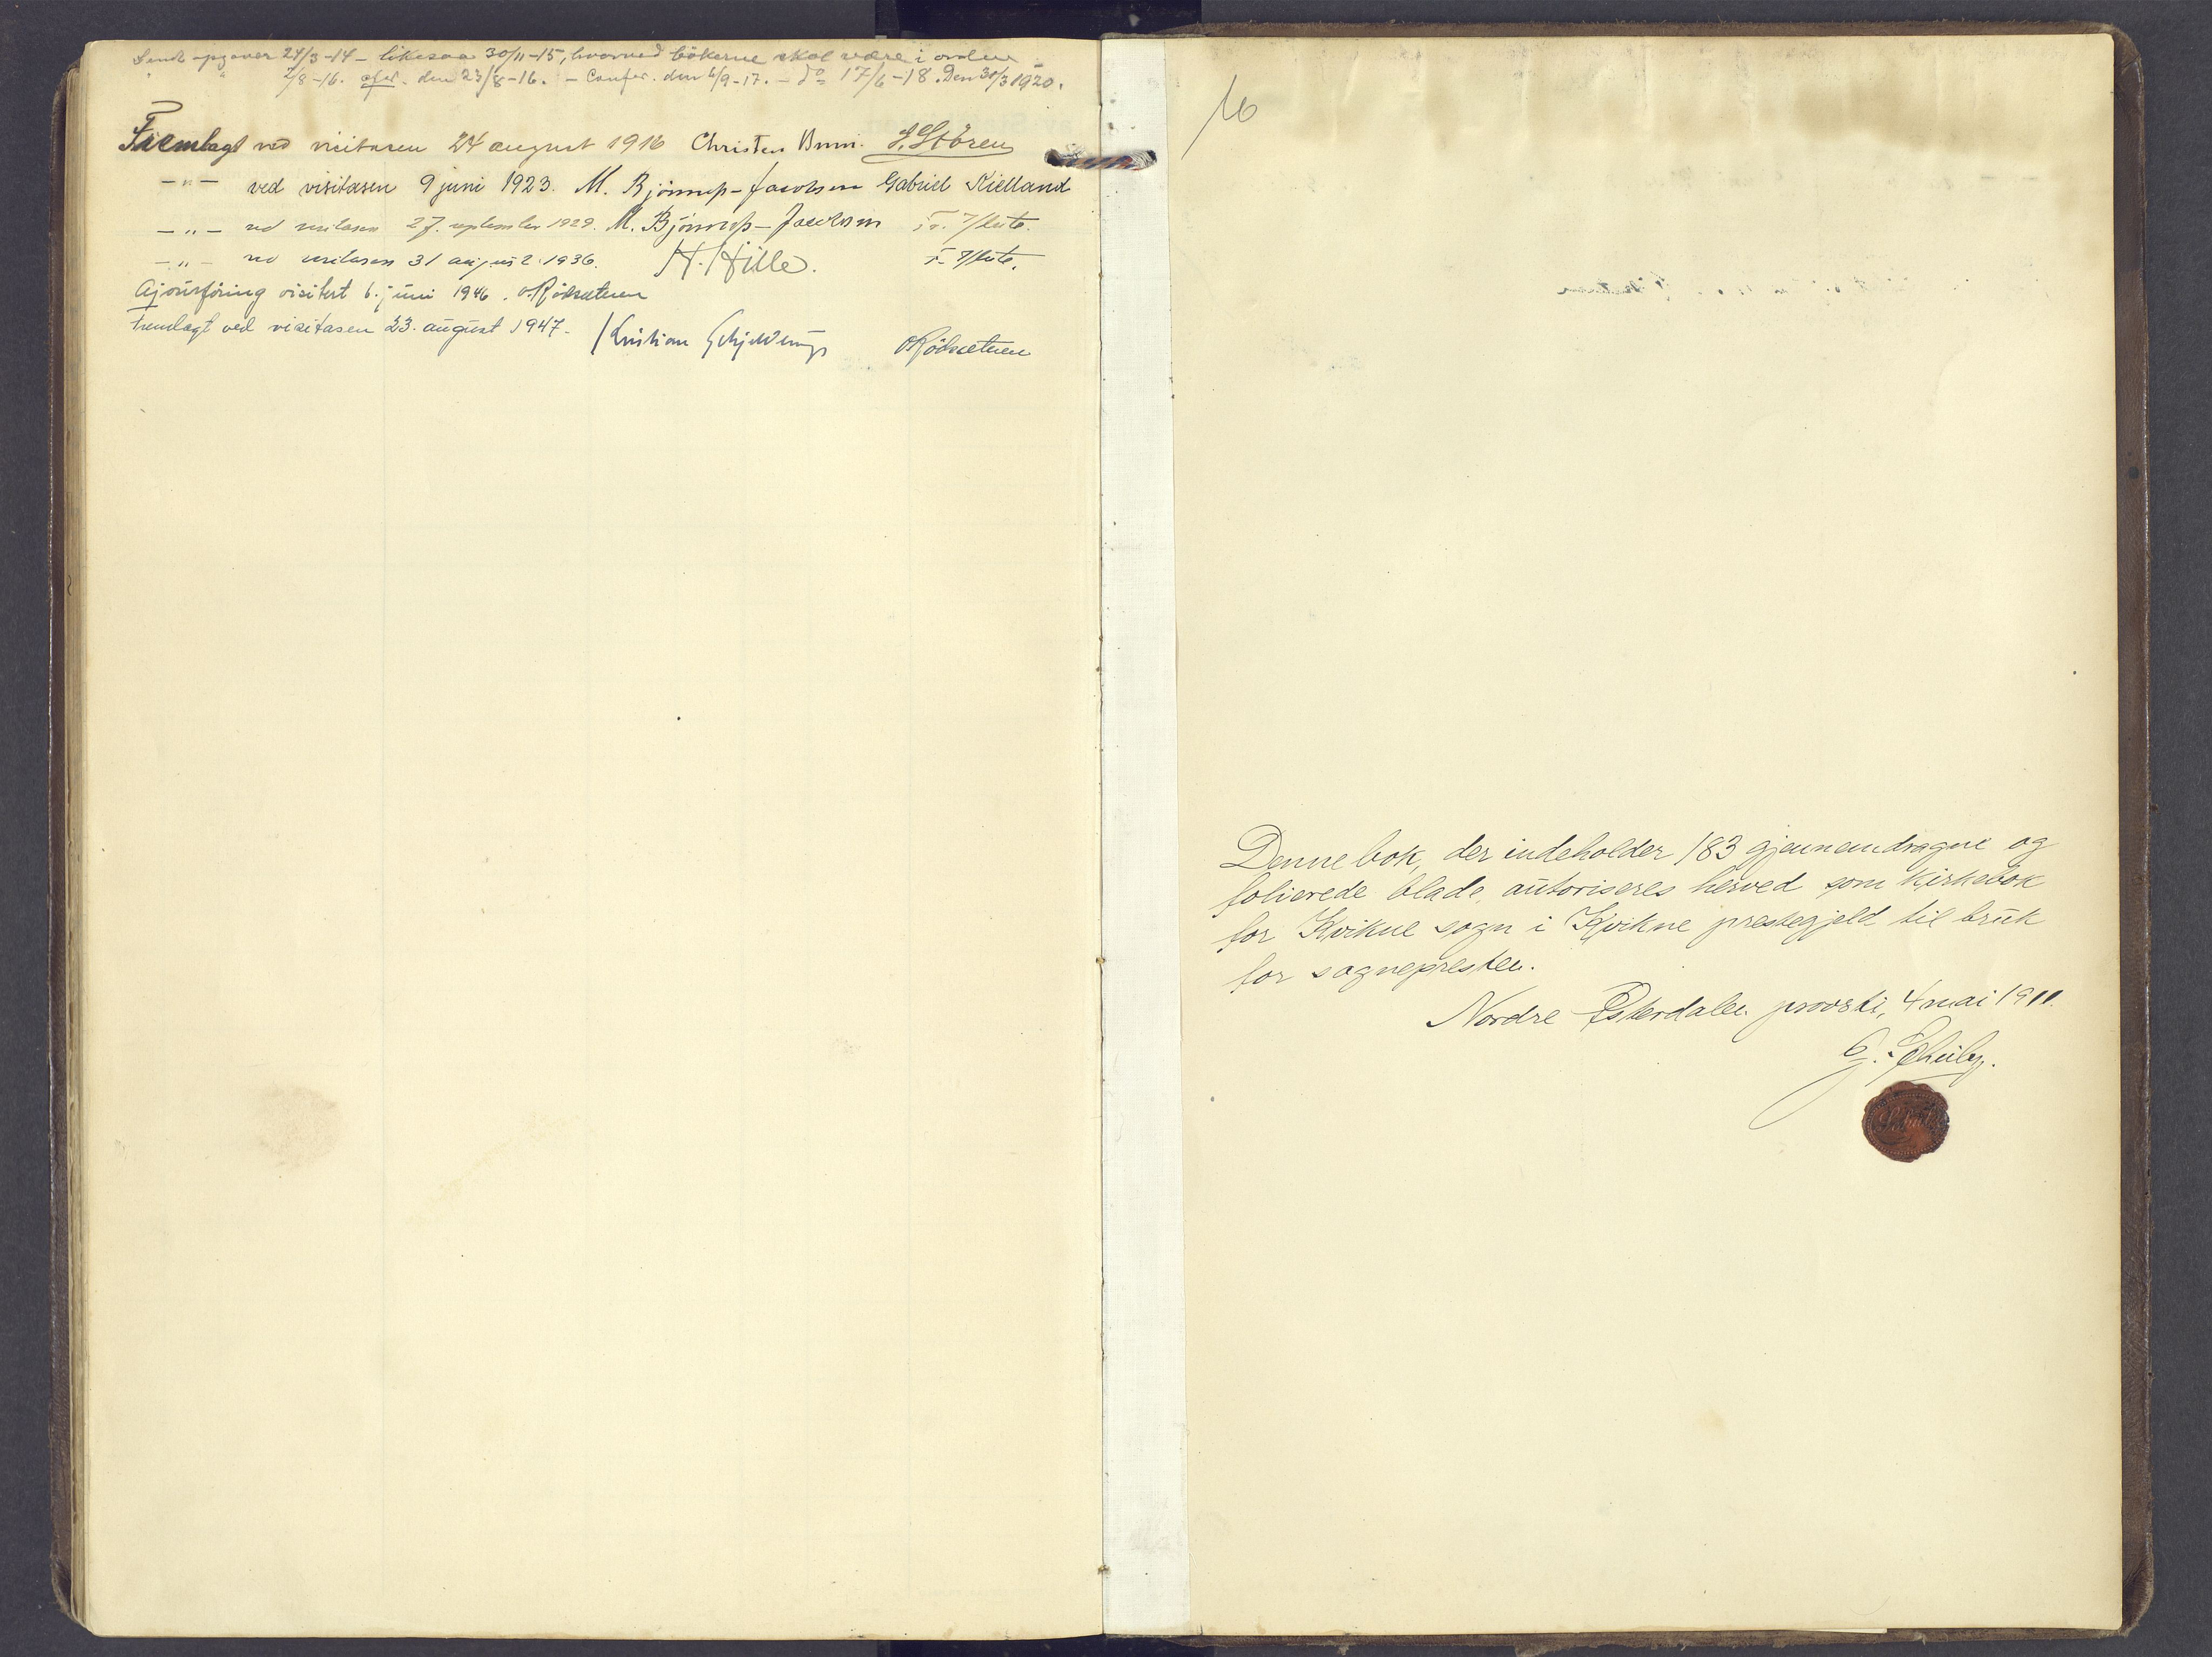 Sendt opgaver 24/3-14 - likesaa 30/11-15, hvorved bökerne skal være i orden
" " 2/8-16. cfer. den 23/8-16. - Confer. den 6/9-17. - do 17/6-18. Den 30/3 1920.
Fremlagt ved visitasen 24 august 1916 Christen Brun. S. Stören
-"- ved visitasen 9 juni 1923. M. Bjönnes-Jacobsen Gabriel Kielland
-"- ved visitasen 27. september 1929. M. Bjönnes-Jacobsen
-"- ved visitasen 31 august 1936. H. Hille.
Ajourföring visitert 6. juni 1946.
Fremlagt ved visitasen 23. august 1947. Kristian Schjelderup
16
Denne bok, der indeholder 183 gjennemdragne og
folierede blade, autoriseres herved som kirkebok
for Kvikne sogn i Kvikne prestegjeld til bruk
for sognepresten.
Nordre Østerdalen provsti, 4 mai 1911.